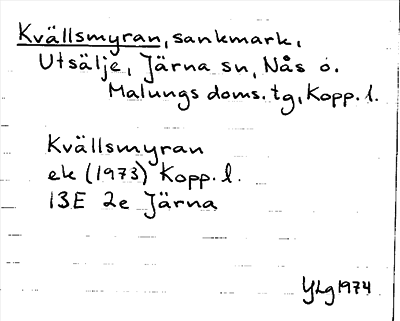 Kvällsmyran, sankmark,
Utsälje, Järna sn, Nås o.
Malungs doms.tg, Kopp. l.
Kvällsmyran
ek (1973) Kopp. l.
13E 2e Järna
YLg 1974